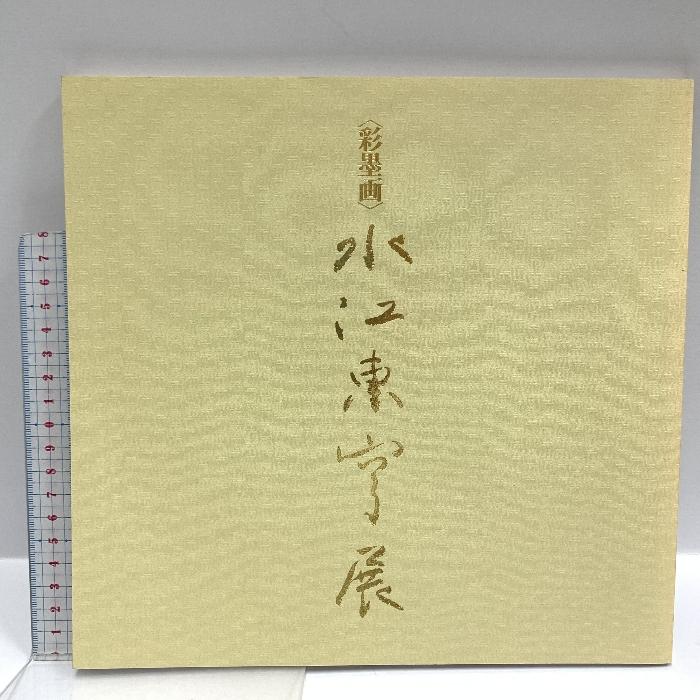 〈彩墨画〉
水江東穹展
1 2 3 4 5 6 7 8 9 0 1 2 3 4 5 6 7 8